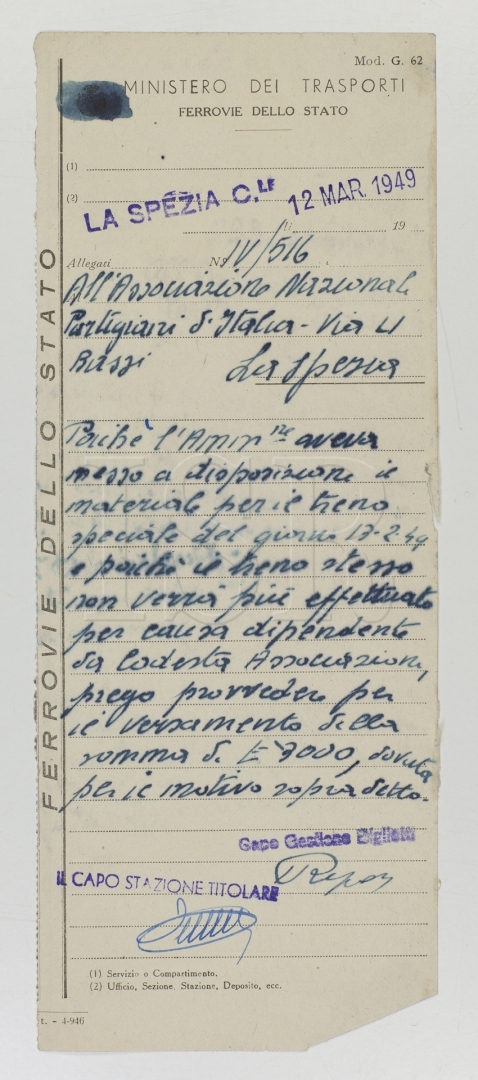 Mod. G. 62
MINISTERO DEI TRASPORTI
FERROVIE DELLO STATO
(1)
(2)
LA SPEZIA C.LE 12 MAR. 1949
li 19
Allegati N° IV/516
All'Associazione Nazionale
Partigiani d'Italia - Via U
Bassi La Spezia
Poiché l'Amm.ne aveva
messo a disposizione il
materiale per il treno
speciale del giorno 13-2-49
e poiché il treno stesso
non verrà più effettuato
per causa dipendente
da Codesta Associazione,
prego provvedere per
il versamento della
somma di £ 7000, dovuta
per il motivo sopradetto.
Capo Gestione Biglietti
IL CAPO STAZIONE TITOLARE
(1) Servizio o Compartimento.
(2) Ufficio, Sezione, Stazione, Deposito, ecc.
t. - 4-946
FERROVIE DELLO STATO